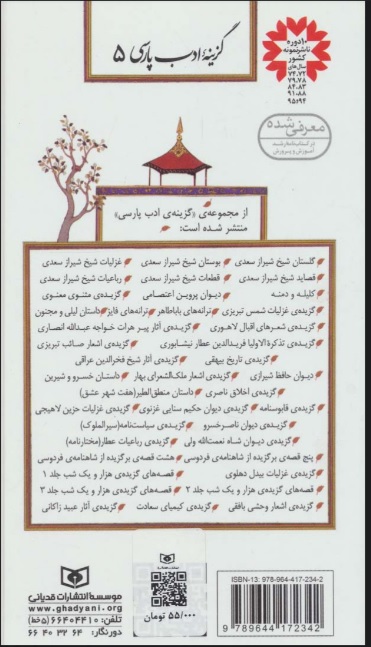 گزینهٔ ادب پارسی ۵
۱۰ دوره
ناشر نمونه
کشور
سال‌های
۷۴،۷۲
۷۹،۷۸
۸۴،۸۳
۹۱،۸۸
۹۵،۹۴
معرفی شده
در کتابنامه رشد
آموزش و پرورش
از مجموعه‌ی «گزینه‌ی ادب پارسی»
منتشر شده است:
گلستان شیخ شیراز سعدی بوستان شیخ شیراز سعدی غزلیات شیخ شیراز سعدی
قصاید شیخ شیراز سعدی قطعات شیخ شیراز سعدی رباعیات شیخ شیراز سعدی
کلیله و دمنه دیوان پروین اعتصامی گزیده‌ی مثنوی معنوی
گزیده‌ی غزلیات شمس تبریزی ترانه‌های باباطاهر ترانه‌های فایز داستان لیلی و مجنون
گزیده‌ی شعرهای اقبال لاهوری گزیده‌ی آثار پیر هرات خواجه عبدالله انصاری
گزیده‌ی تذکرة‌الاولیا فریدالدین عطار نیشابوری گزیده‌ی اشعار صائب تبریزی
گزیده‌ی تاریخ بیهقی گزیده‌ی آثار شیخ فخرالدین عراقی
دیوان حافظ شیرازی گزیده‌ی اشعار ملک‌الشعرای بهار داستان خسرو و شیرین
گزیده‌ی اخلاق ناصری داستان منطق‌الطیر(هفت شهر عشق)
گزیده‌ی قابوسنامه گزیده‌ی دیوان حکیم سنایی غزنوی گزیده‌ی غزلیات حزین لاهیجی
گزیده‌ی دیوان ناصرخسرو گزیده‌ی سیاست‌نامه(سیرالملوک)
گزیده‌ی دیوان شاه نعمت‌الله ولی گزیده‌ی رباعیات عطار(مختارنامه)
پنج قصه‌ی برگزیده از شاهنامه‌ی فردوسی هشت قصه‌ی برگزیده از شاهنامه‌ی فردوسی
گزیده‌ی غزلیات بیدل دهلوی قصه‌های گزیده‌ی هزار و یک شب جلد ۱
قصه‌های گزیده‌ی هزار و یک شب جلد ۲ قصه‌های گزیده‌ی هزار و یک شب جلد ۳
گزیده‌ی اشعار وحشی بافقی گزیده‌ی کیمیای سعادت گزیده‌ی آثار عبید زاکانی
موسسهٔ انتشارات قدیانی
www.ghadyani.org
تلفن: ۶۶۴۰۴۴۱۰ (۵ خط)
دورنگار: ۶۶ ۴۰ ۳۲ ۶۴
۵۵/۰۰۰ تومان
ISBN-13: 978-964-417-234-2
9 789644 172342